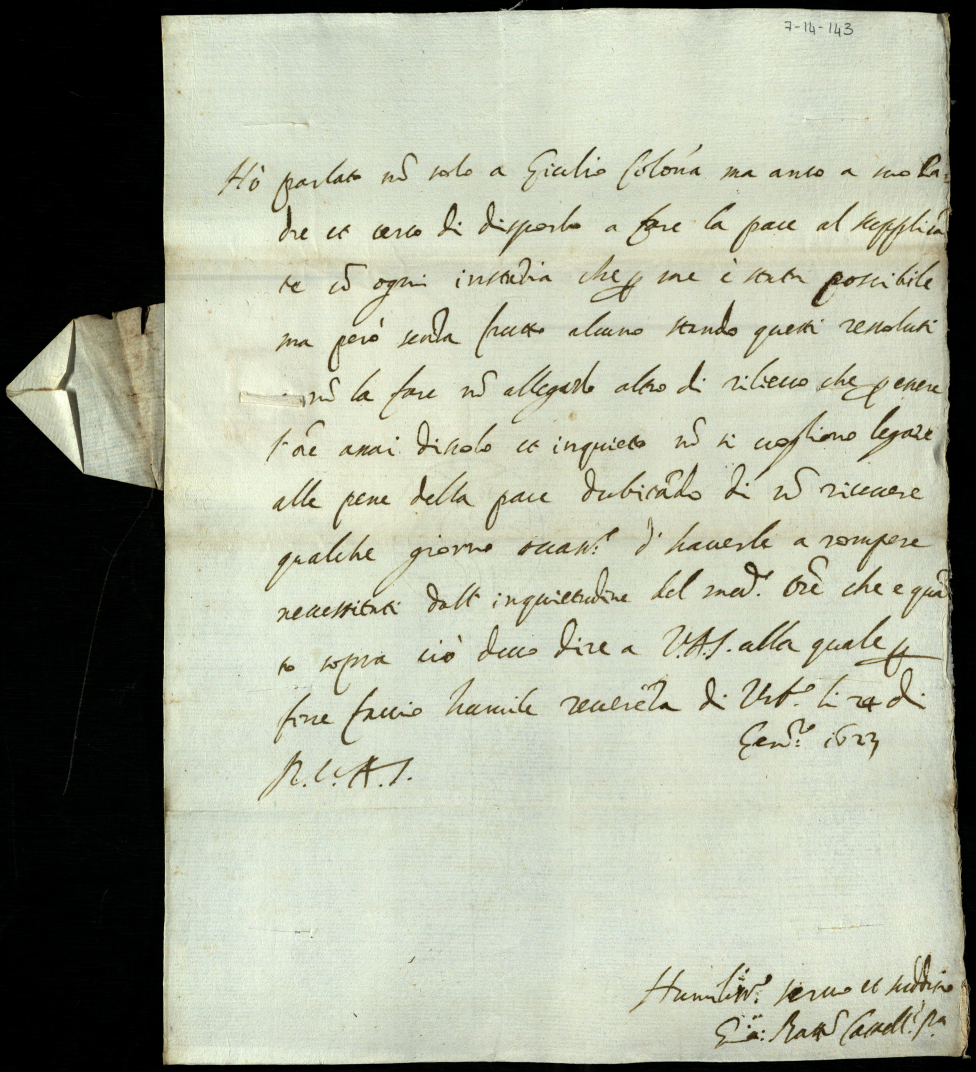 7-14-143
Hò parlato nõ solo a Giulio Colõna ma anco a suo Pa-
dre et cerco di disporlo a fare la pace al supplicã
te cõ ogni instãtia che p me è stata possibile
ma però senza frutto alcuno stando questi ressoluti
nõ la fare nõ allegãdo altro di rilievo che p essere
l'ore assai discolo et inquieto nõ si vogliono legare
alle pene della pace dubitãdo di nõ ricevere
qualche giorno occasne d' haverle a rompere
necessitati dall' inquietudine del med.o Ore che e quã
to sopra ciò devo dire a V.A.S. alla quale p
fine faccio humile reverẽza di Urb.o li 24 di
Gen.ro 1623
D.V.A.S.
Humiliss.o servo et suddito